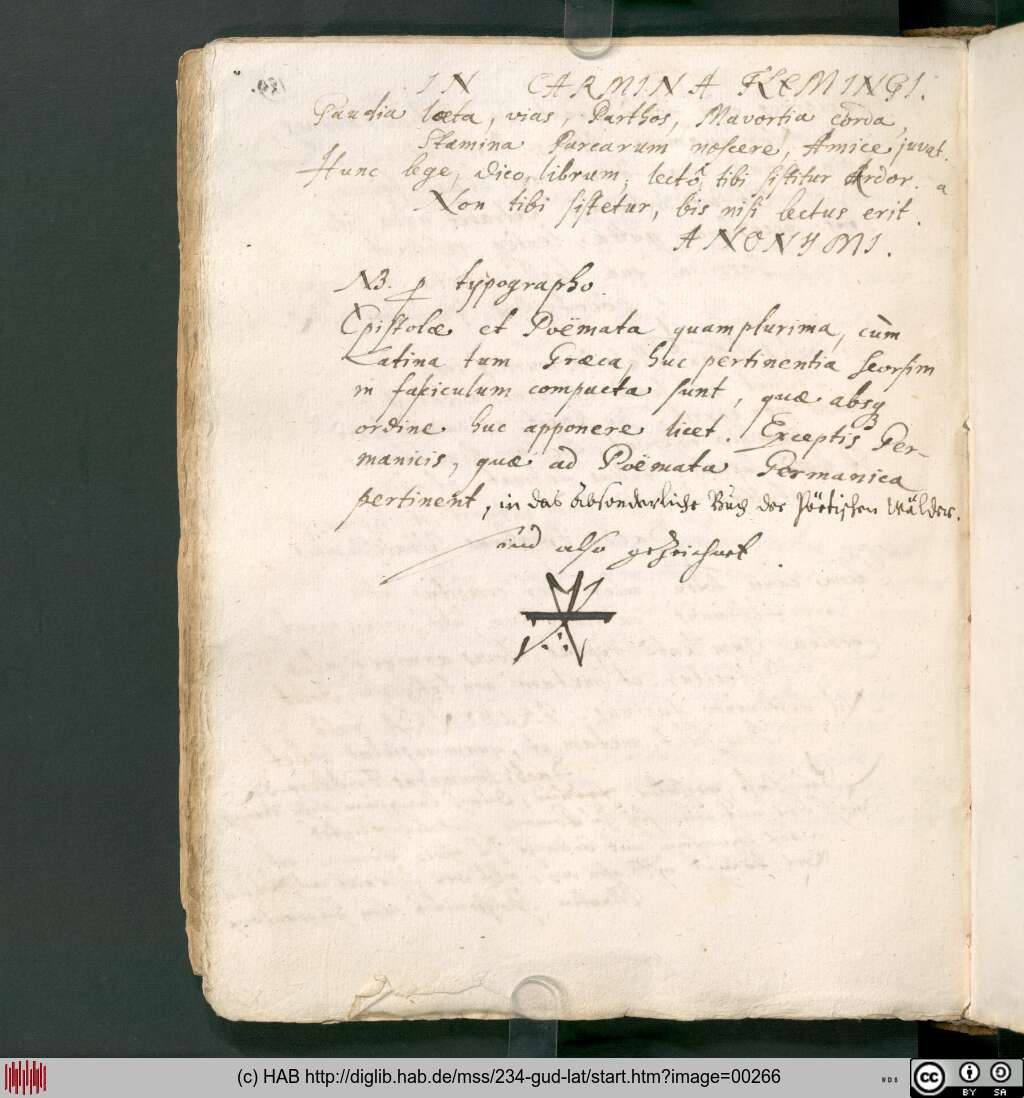 IN CARMINA FLEMINGI.
Gaudia læta, vias, Parthos, Mavortia corda,
Stamina Parcarum noscere, Amice juvat.
Hunc lege, dico, librum; lectô, tibi sistitur Ardor. a
Non tibi sistetur, bis nisi lectus erit.
ANONYMI.
NB. p typographo.
Epistolæ et Poëmata quamplurima, cùm
Latina tum Græca, huc pertinentia seorsim
in fasciculum compacta sunt, quæ absq
ordine huc apponere licet. Exceptis Ger-
manicis, quæ ad Poëmata Germanica
pertinent, in das absonderliche Buch der Pöetischen Wälder.
sind also gezeichnet.
(c) HAB http://diglib.hab.de/mss/234-gud-lat/start.htm?image=00266
cc BY SA